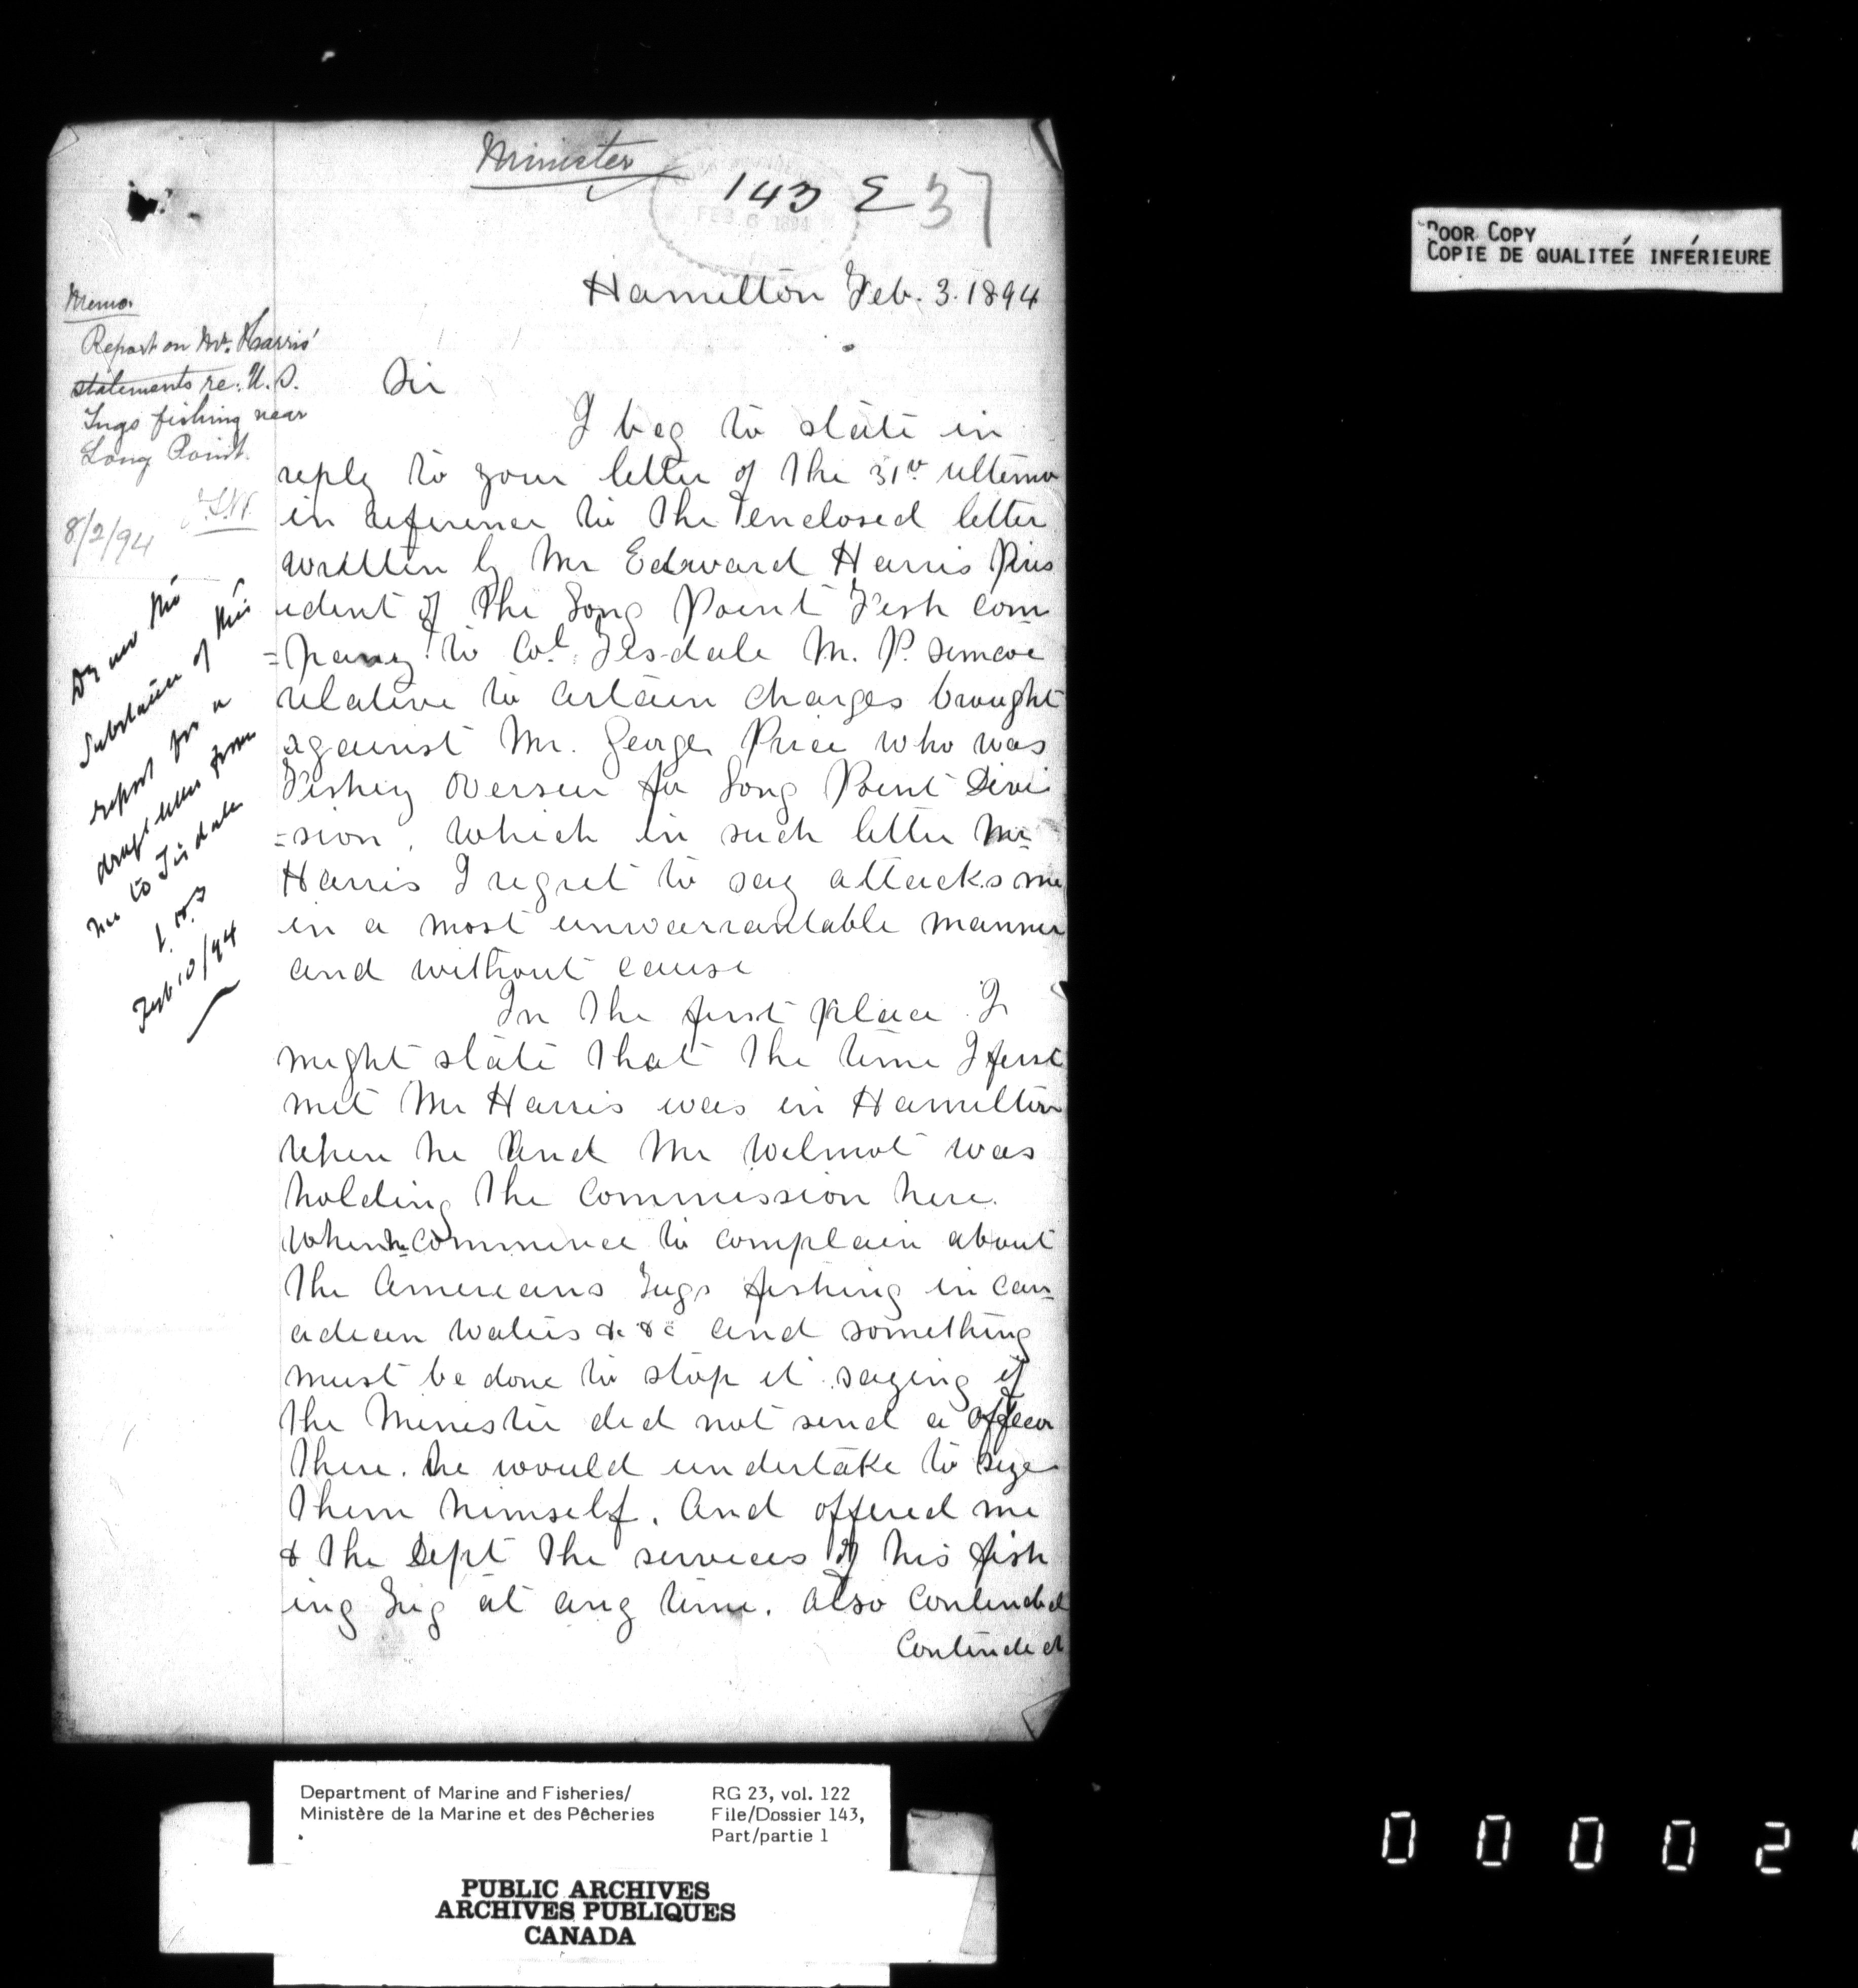 Minister
143 E 37
Hamilton Feb. 3. 1894
Memo.
Report on Mr. Harris'
statements re: U.S.
Tugs fishing near
Long Point.
8/2/94
substance of this
report for a
draft letter from
me to Tisdale
Feb 10/94
Sir
I beg to state in
reply to your letter of the 31st ultimo
in reference to the enclosed letter
written by Mr Edward Harris Pres
ident of the Long Point Fish com
=pany to Col. Tisdale M. P. Simcoe
relative to certain charges brought
against Mr. George Price who was
Fishery Overseer for Long Point Divi
=sion, which in such letter Mr
Harris I regret to say attacks me
in a most unwarrantable manner
and without cause
In the first place I
might state that the time I first
met Mr Harris was in Hamilton
when he and Mr Wilmot was
holding the Commission here.
When he commence to complain about
the Americans Tugs fishing in Can
adian Waters &c &c and something
must be done to stop it. saying if
the Minister did not send a officer
there. he would undertake to size
them himself. And offered me
& the Dept the services of his fish
ing Tug at any time. Also Contended
Contended
POOR COPY
COPIE DE QUALITEÉ INFÉRIEURE
Department of Marine and Fisheries/
Ministère de la Marine et des Pêcheries
RG 23, vol. 122
File/Dossier 143,
Part/partie 1
PUBLIC ARCHIVES
ARCHIVES PUBLIQUES
CANADA
0 0 0 0 2